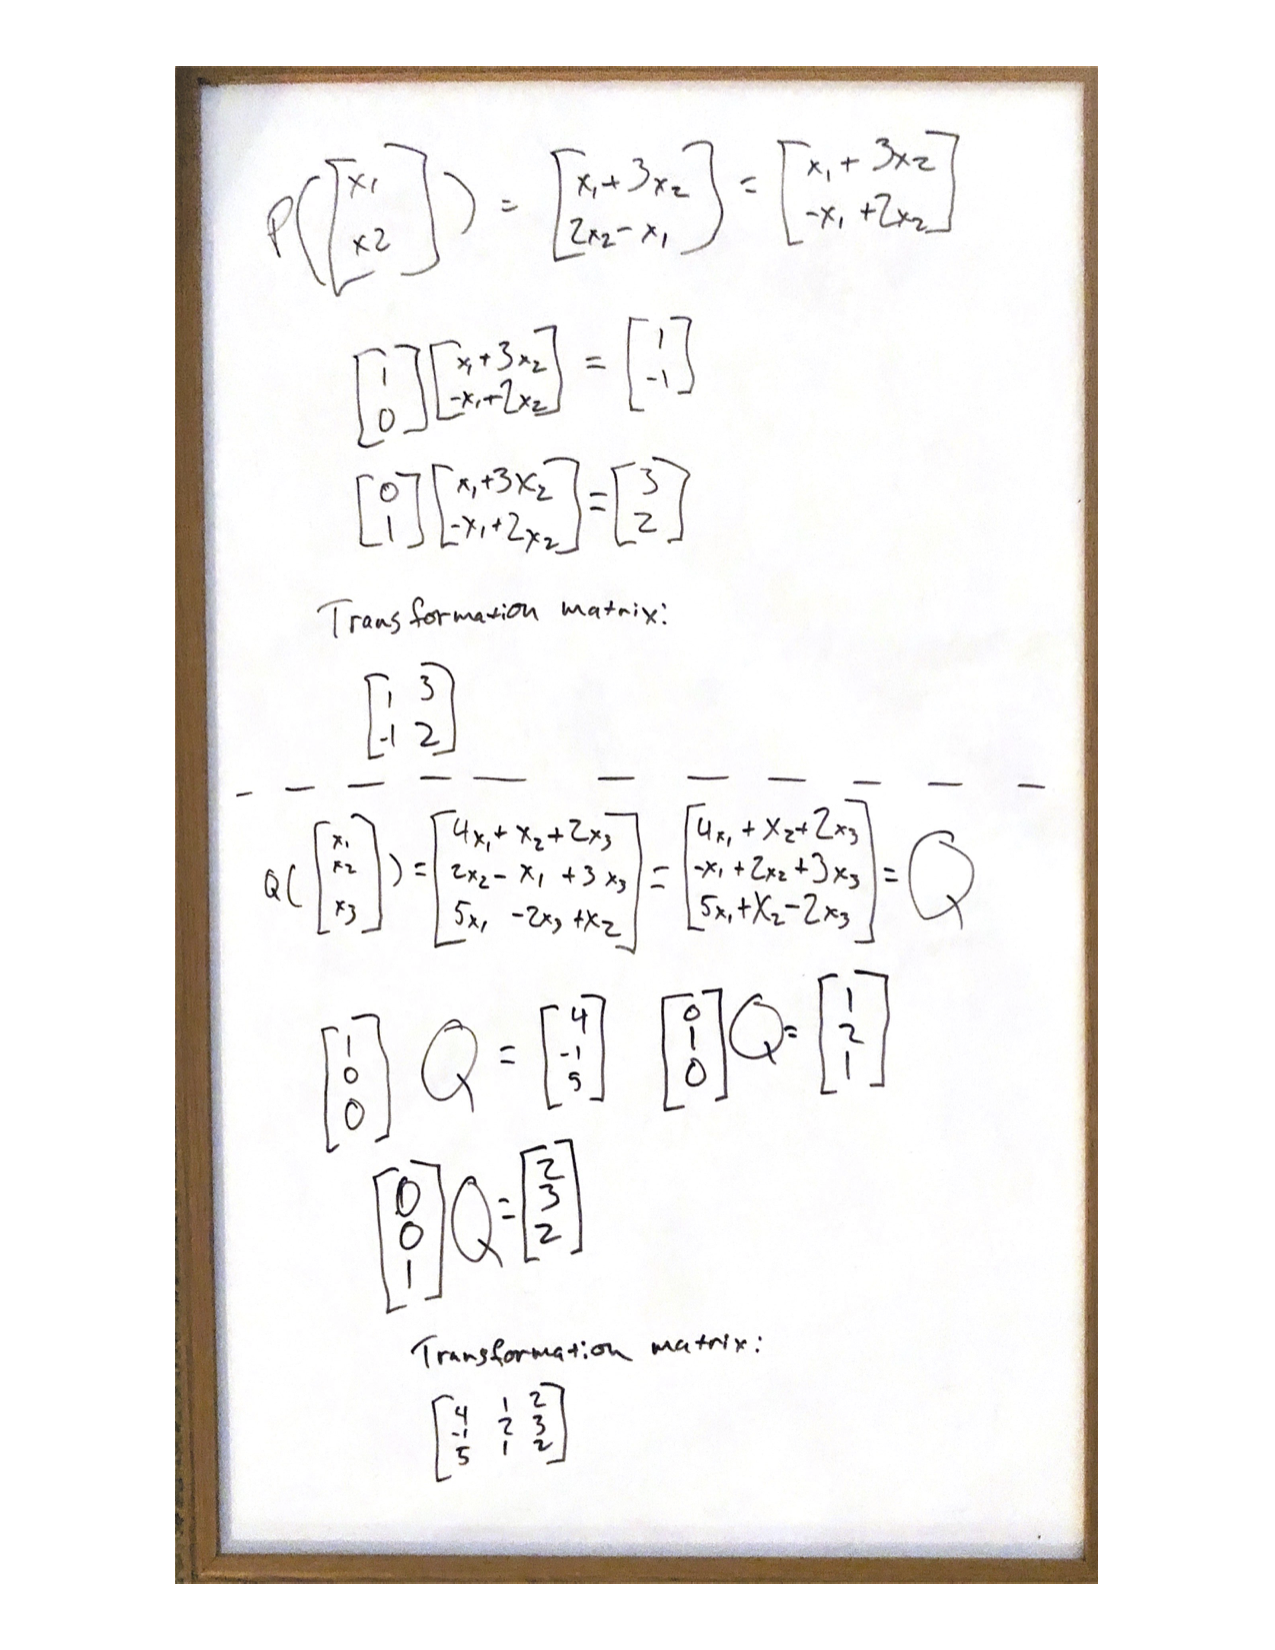 P([x1; x2]) = [x1+3x2; 2x2-x1] = [x1+3x2; -x1+2x2]
[1; 0][x1+3x2; -x1+2x2] = [1; -1]
[0; 1][x1+3x2; -x1+2x2] = [3; 2]
Transformation matrix:
[1 3; -1 2]
Q([x1; x2; x3]) = [4x1+x2+2x3; 2x2-x1+3x3; 5x1-2x3+x2] = [4x1+x2+2x3; -x1+2x2+3x3; 5x1+x2-2x3] = Q
[1; 0; 0] Q = [4; -1; 5] [0; 1; 0] Q = [1; 2; 1]
[0; 0; 1] Q = [2; 3; 2]
Transformation matrix:
[4 1 2; -1 2 3; 5 1 2]